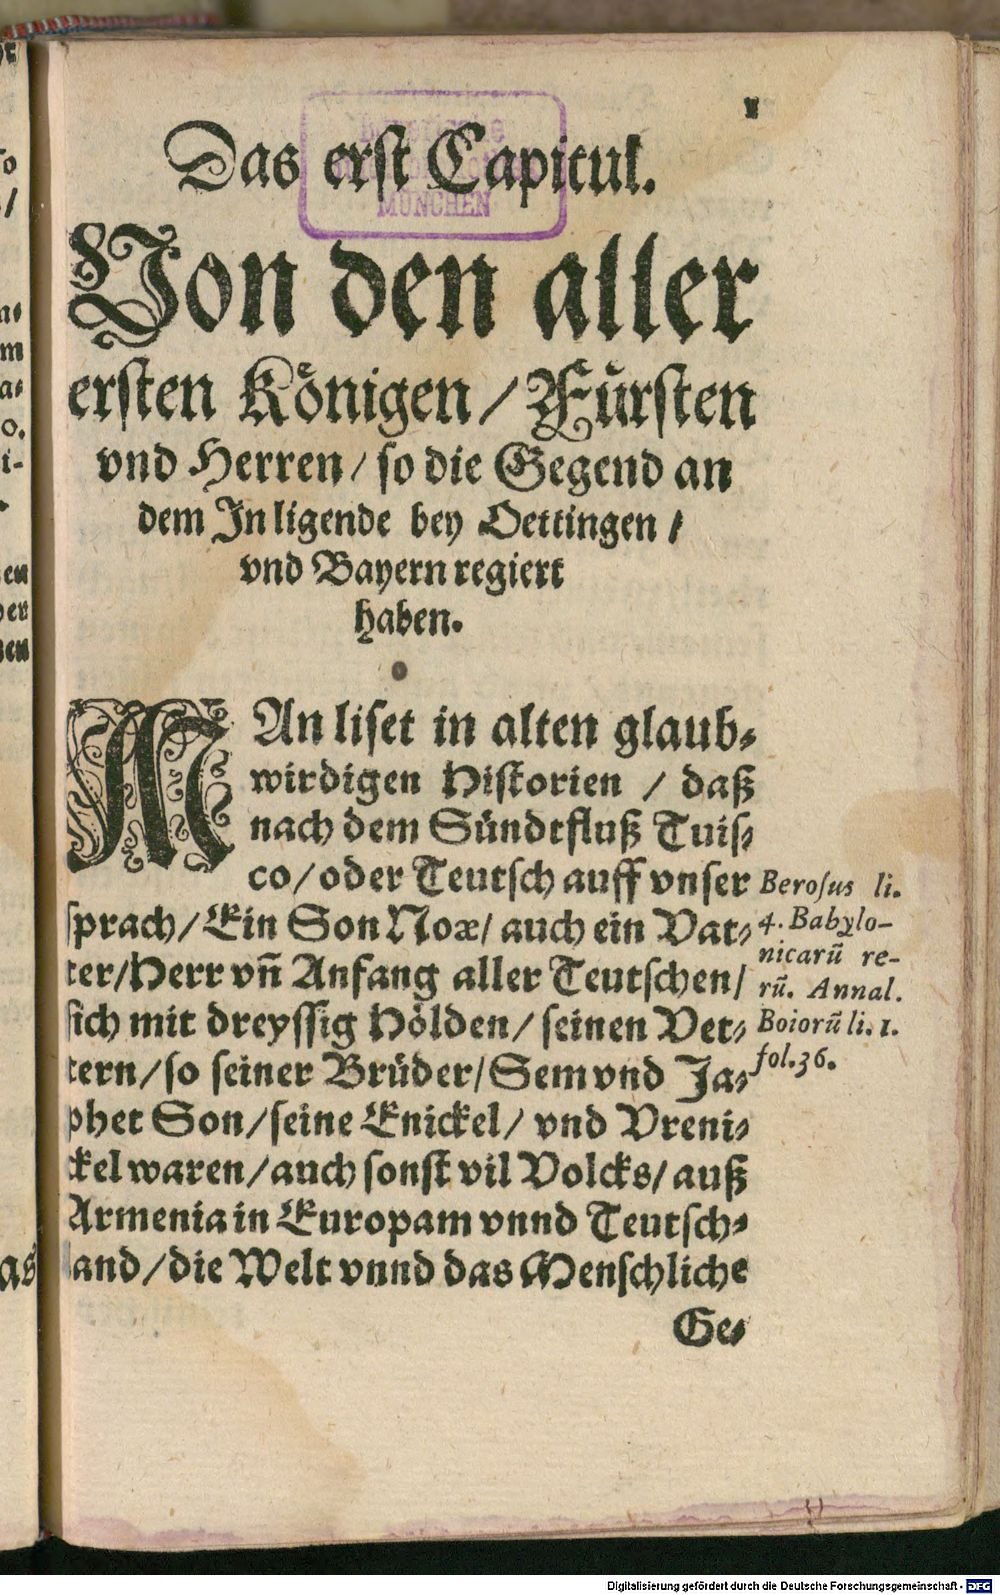 1
Das erst Capitul.
Von den aller
ersten Königen / Fürsten
vnd Herren / so die Gegend an
dem In ligende bey Oettingen /
vnd Bayern regiert
haben.
MAn liset in alten glaub⸗
wirdigen Historien / daß
nach dem Sündtfluß Tuis⸗
co / oder Teutsch auff vnser
sprach / Ein Son Noæ / auch ein Vat⸗
ter / Herr vñ Anfang aller Teutschen /
sich mit dreyssig Hölden / seinen Vet⸗
tern / so seiner Brüder / Sem vnd Ja⸗
phet Son / seine Enickel / vnd Vreni⸗
ckel waren / auch sonst vil Volcks / auß
Armenia in Europam vnnd Teutsch⸗
land / die Welt vnnd das Menschliche
Ge⸗
Berosus li.
4. Babylo-
nicarũ re-
rũ. Annal.
Boiorũ li. 1.
fol. 36.
MÜNCHEN
as
Digitalisierung gefördert durch die Deutsche Forschungsgemeinschaft - DFG